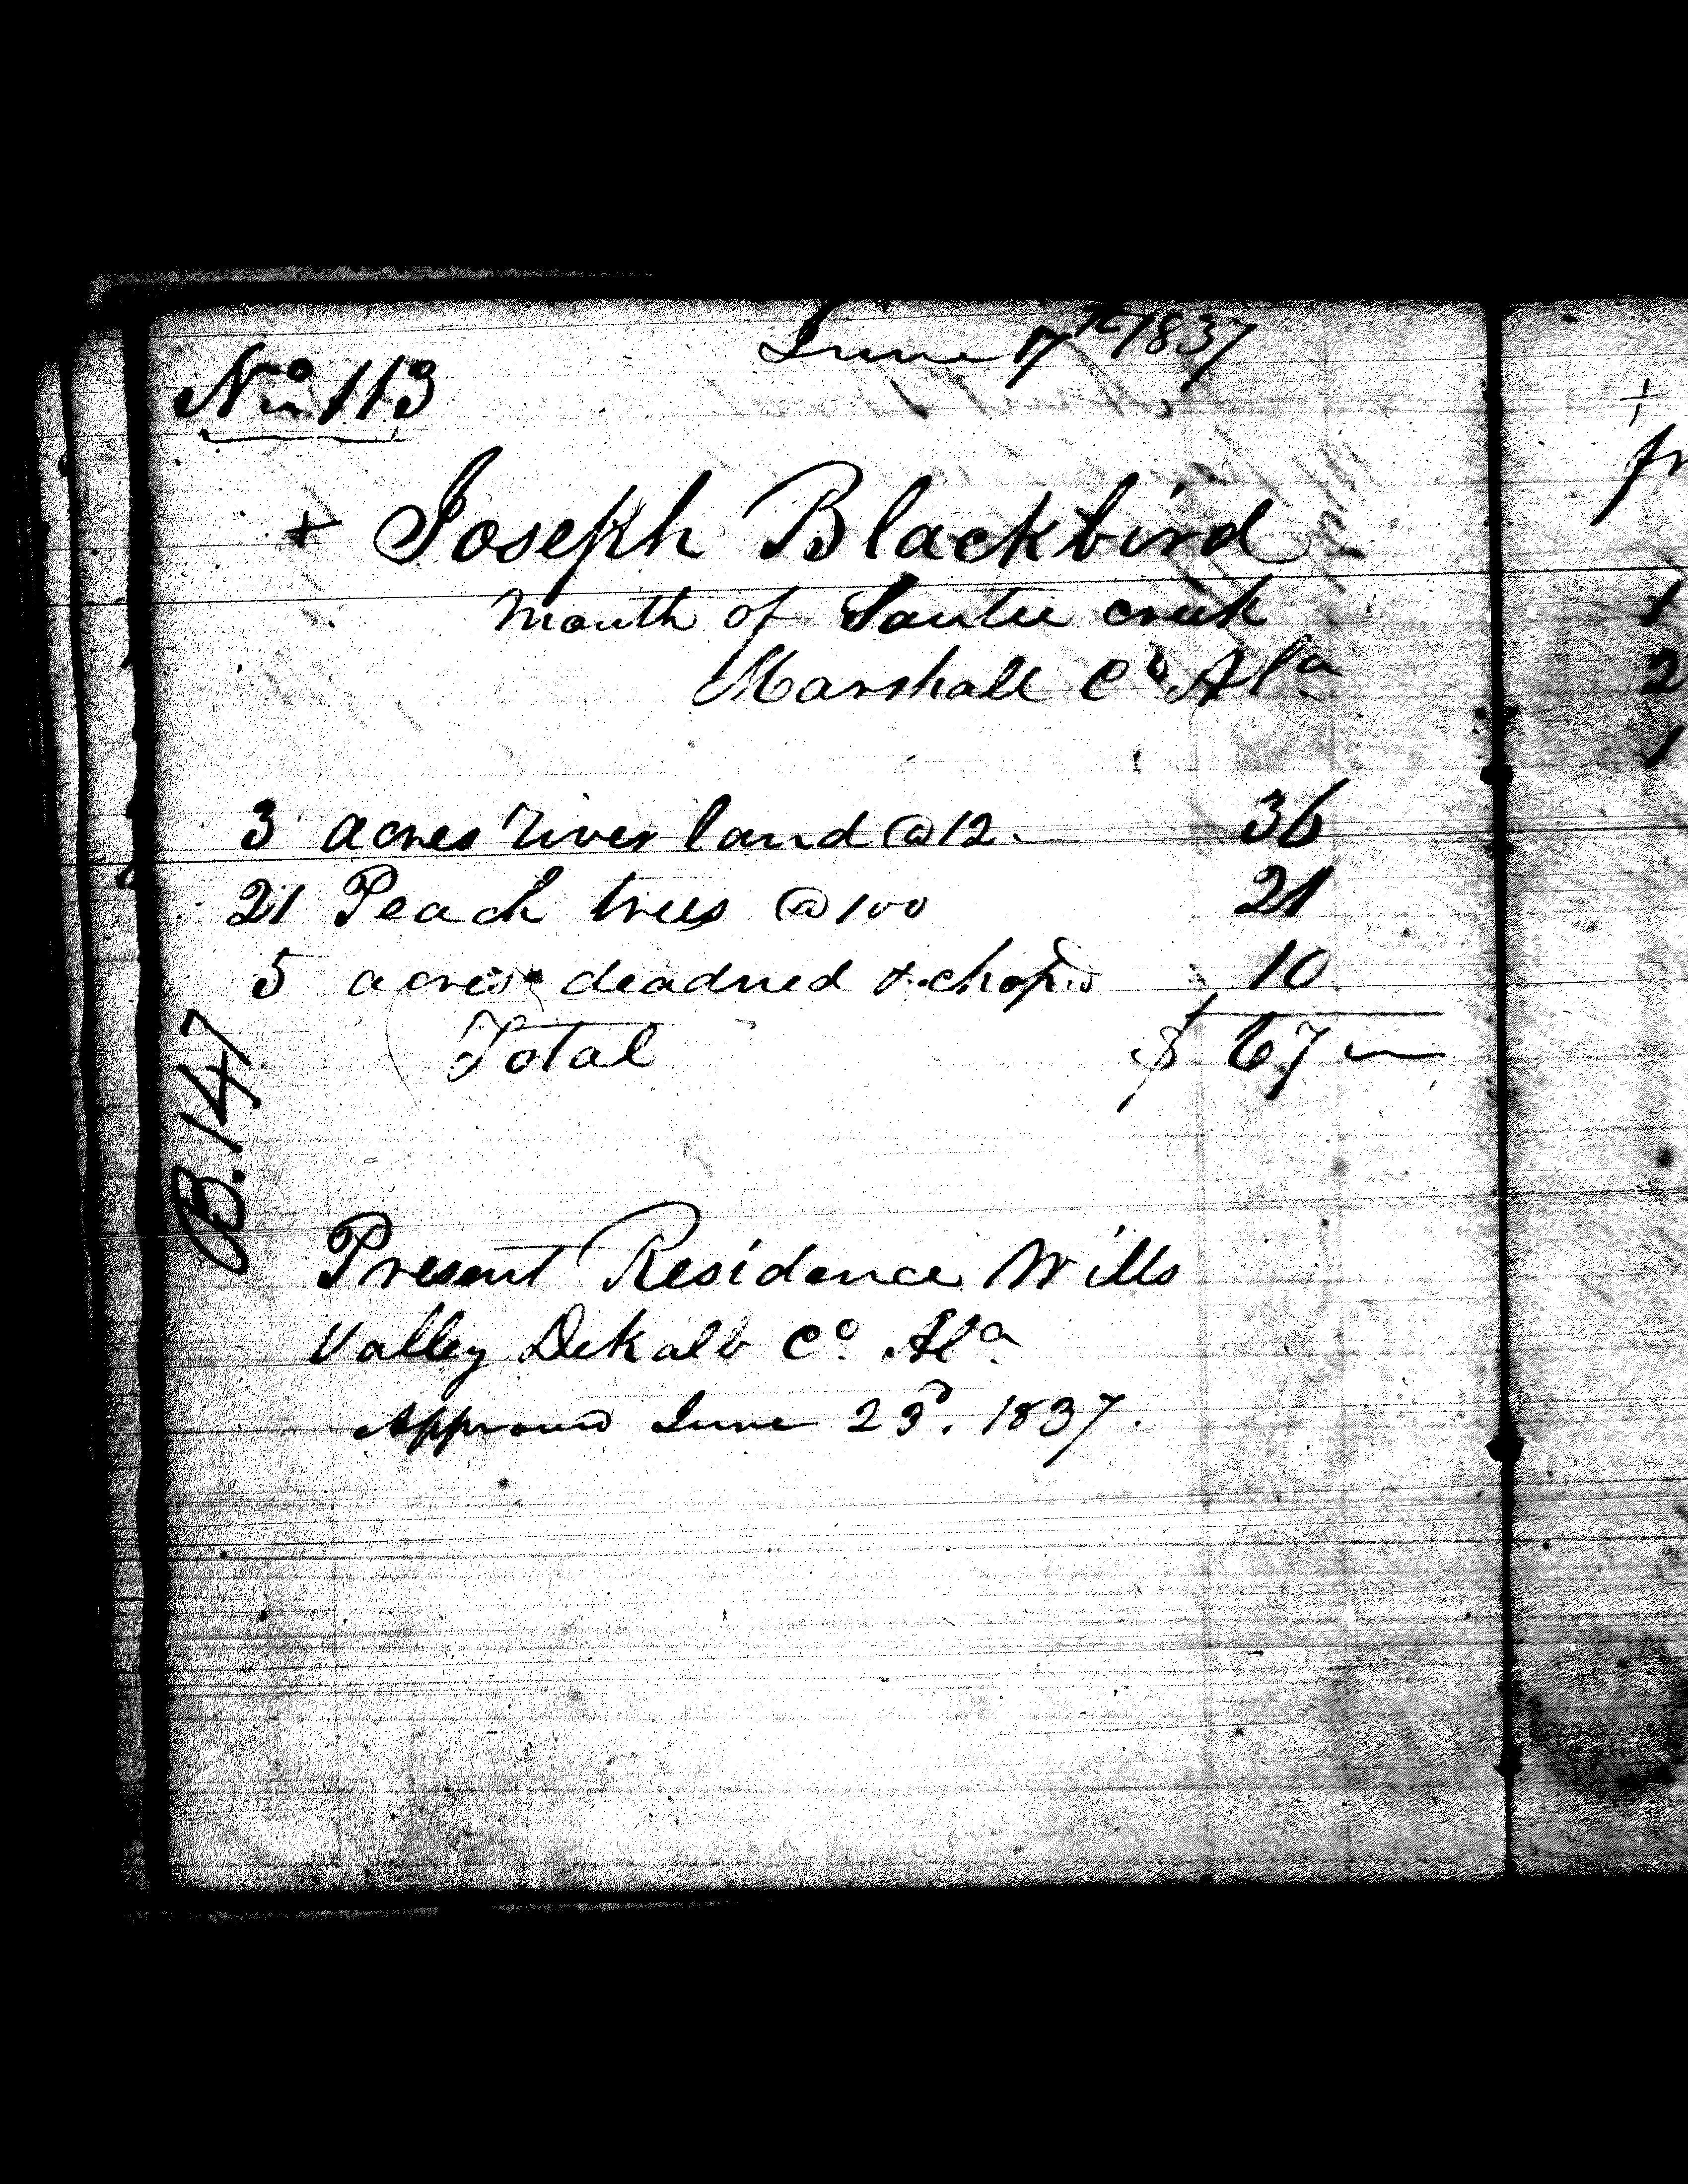 June 17th 1837
No 113
+ Joseph Blackbird
Mouth of Santee creek
Marshall Co. Ala
3 acres river land @ 12 36
21 Peach trees @ 100 21
5 acres deadned & chopd 10
Total $ 67
B. 147
Present Residence Wills
Valley DeKalb Co. Ala
Approved June 23d. 1837.
+
fr
1
2
1